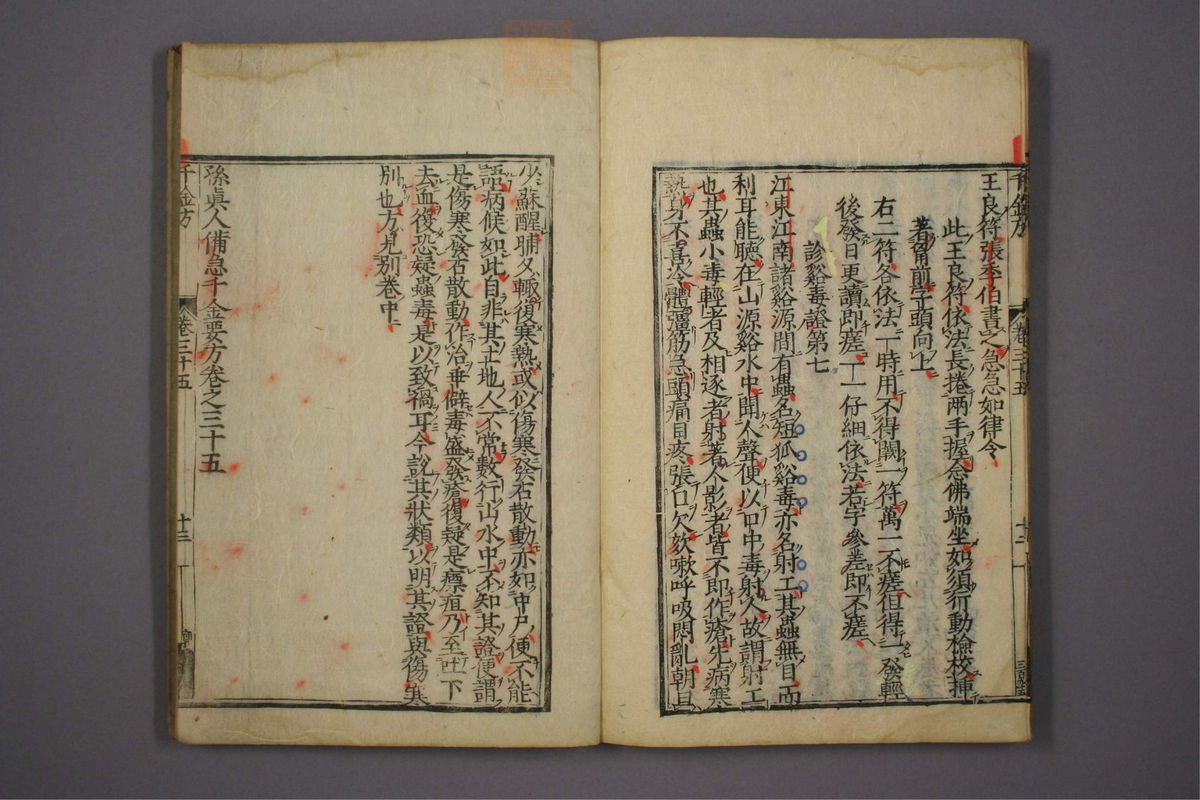 王良符張季伯書之急急如律令
此王良符依法長捲兩手握念佛端坐如須行動檢校揷
著胷前字頭向上
右二符各依法一時用不得闕一符萬一不瘥但得一發輕
後發日更讀即瘥一一仔細依法若字參差即不瘥
診谿毒證第七
江東江南諸谿源間有蟲名短狐谿毒亦名射工其蟲無目而
利耳能聽在山源谿水中聞人聲便以口中毒射人故謂射工
也其蟲小毒輕者及相逐者射著人影者皆不即作瘡先病寒
熱身不喜冷體彊筋急頭痛目疼張口欠欬嗽呼吸悶亂朝旦
千金方 卷三十五 十二
少蘇醒晡夕輙復寒熱或似傷寒發石散動亦如中尸便不能
語病候如此自非其土地人不常數行山水中不知其證便謂
是傷寒發石散動作治乖僻毒盛發瘡復疑是瘭疽乃至吐下
去血復恐疑蟲毒是以致禍耳今說其狀類以明其證與傷寒
別也方見別卷中
孫眞人備急千金要方卷之三十五
千金方 卷三十五 十三